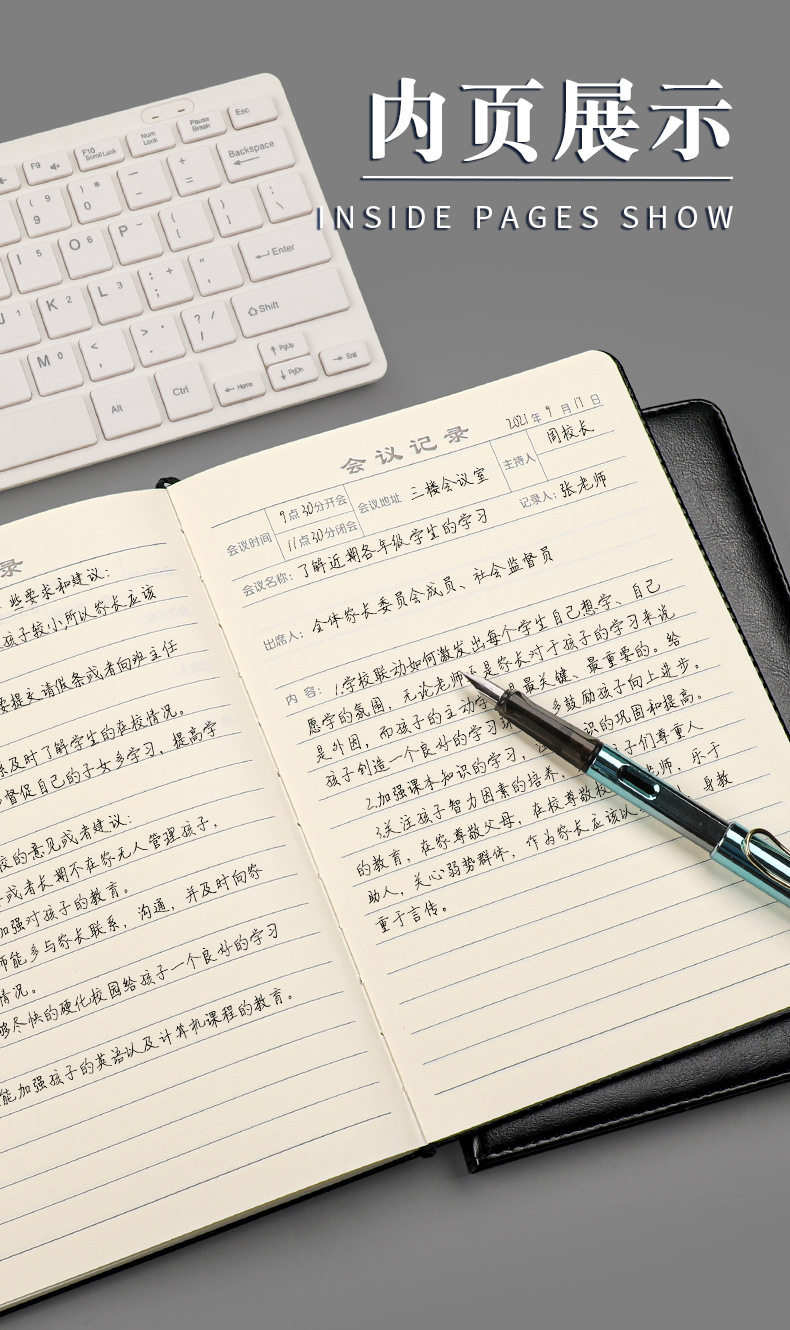 内页展示
INSIDE PAGES SHOW
Esc
Pause Break
Num Lock
F10 Scroll Lock
F9
Backspace
+ =
— -
) 0
( 9
Enter
P
O 6
I 5
L 3
K 2
J 1
Shift
? /
> .
< ,
M 0
PgUp
PgDn
End
Home
Ctrl
Alt
会议记录
2021年9月17日
会议时间 9点30分开会 11点30分闭会
会议地址 三楼会议室
主持人 周校长
会议名称：了解近期各年级学生的学习
记录人：张老师
出席人：全体家长委员会成员、社会监督员
内 容：1.学校联动如何激发出每个学生自己想学、自己
愿学的氛围，无论老师 是家长对于孩子的学习来说
是外因，而孩子的主动学 最关键、最重要的。给
孩子创造一个良好的学习 多鼓励孩子向上进步。
2.加强课本知识的学习， 识的巩固和提高。
3.关注孩子智力因素的培养， 孩子们尊重人
的教育，在家尊敬父母，在校尊敬 老师，乐于
助人，关心弱势群体，作为家长应该以 身教
重于言传。
录
些要求和建议：
孩子较小，所以家长应该
要提交请假条或者向班主任
及时了解学生的在校情况。
督促自己的子女多学习，提高学
校的意见或者建议：
或者长期不在家无人管理孩子，
加强对孩子的教育。
师能多与家长联系，沟通，并及时向家
情况。
够尽快的硬化校园给孩子一个良好的学习
能加强孩子的英语以及计算机课程的教育。